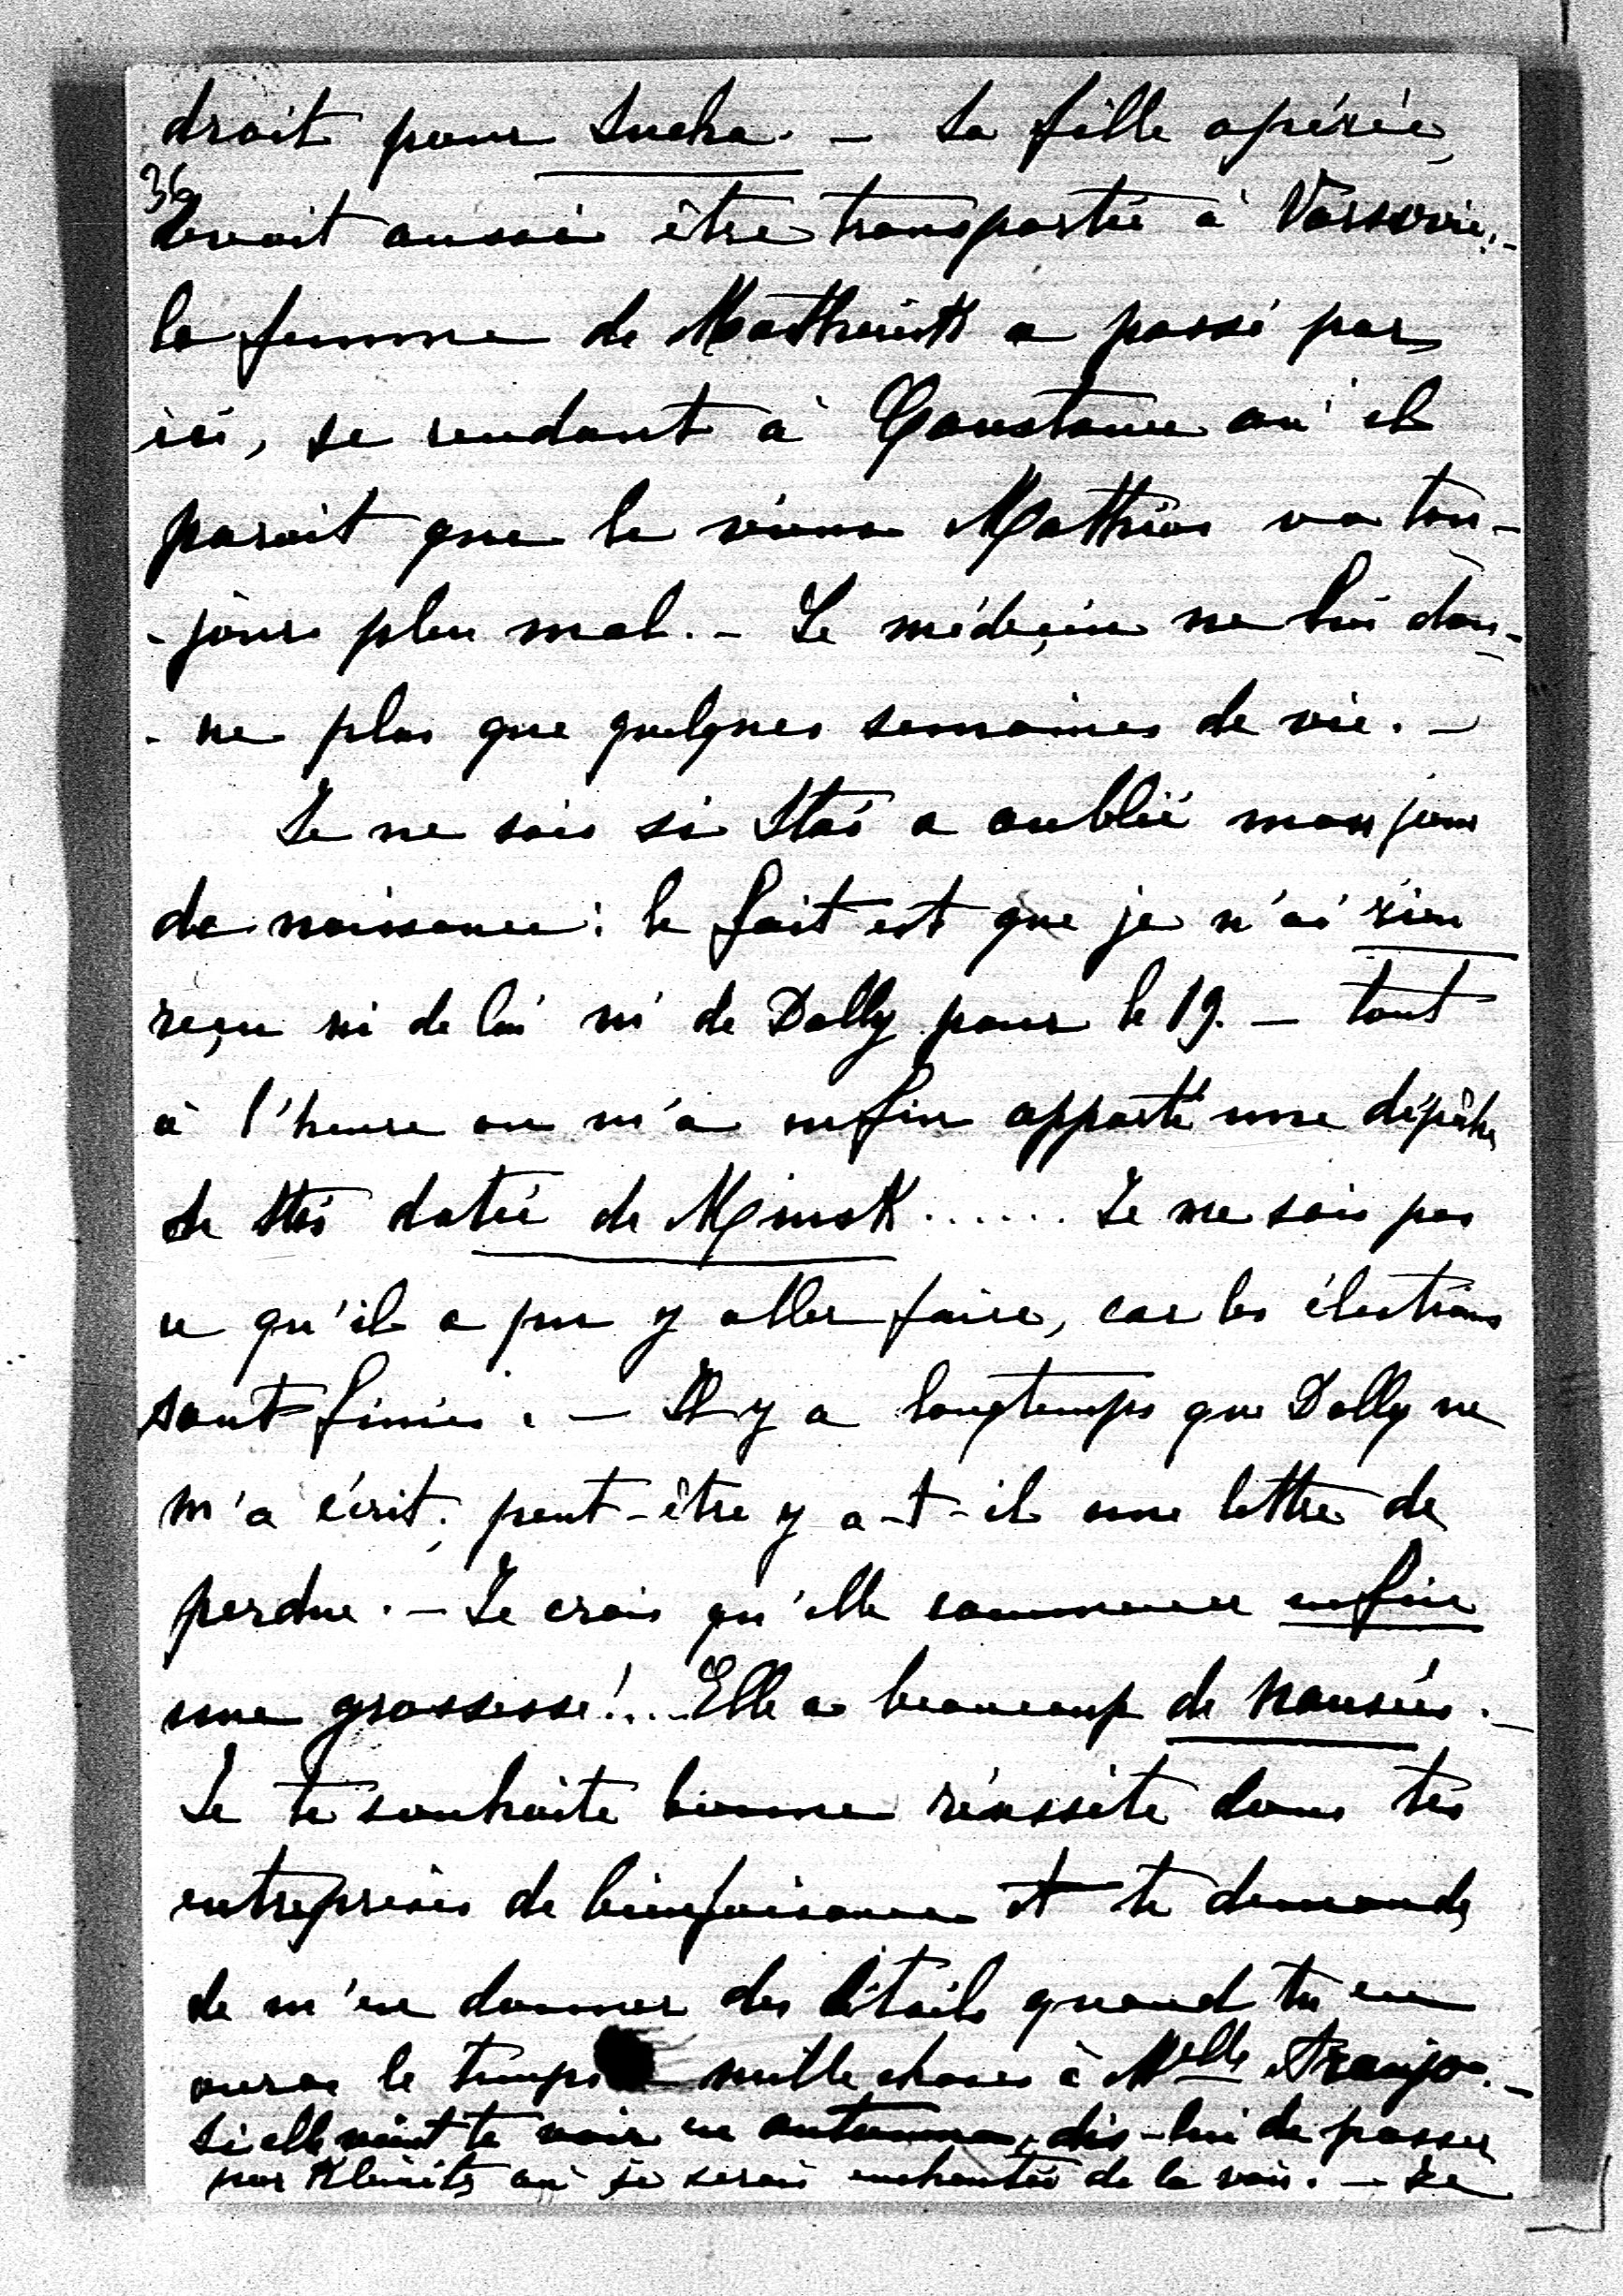 droit pour Sucha. — La fille opérée,
36
devait aussi être transportée à Varsovie. —
la femme de a passé par
ici, se rendant à Constance où il
parait que le vieux Matthias va tou-
-jours plus mal. — Le médeçin ne lui don-
-ne plus que quelques semaines de vie. —
Je ne sais si Staś a oublié mon jour
de naissance: le fait est que je n'ai rien
reçu ni de lui ni de Dolly pour le 19. — tout
à l'heure on m'a enfin apporté une dépêche
de Staś datée de Minsk ...... Je ne sais pas
ce qu'il a pu y aller faire, car les élections
sont finies. — Il y a longtemps que Dolly ne
m'a écrit; peut-être y a-t-il une lettre de
perdue. — Je crois qu'elle commence enfin
une grossesse!... Elle a beaucoup de nausées. —
Je te souhaite bonne réussite dans tes
entreprises de bienfaisance et te demande
de m'en donner des détails quand tu en
auras le temps mille choses à Melle Araujo. —
Si elle vient te voir en automne, dis-lui de passer
par Kleinitz où je serais enchantée de la voir. — Je